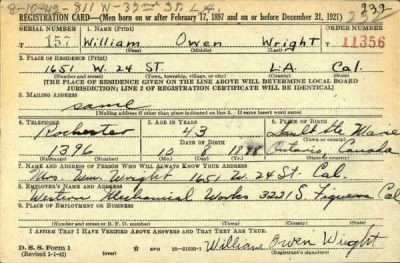 8-10-42-811 W-32nd St. L.A.
232
REGISTRATION CARD—(Men born on or after February 17, 1897 and on or before December 31, 1921)
SERIAL NUMBER 1. NAME (Print) ORDER NUMBER
T 157 William Owen Wright 11356
(First) (Middle) (Last)
2. PLACE OF RESIDENCE (Print)
1651 W. 24 ST. L.A. Cal.
(Number and street) (Town, township, village, or city) (County) (State)
[THE PLACE OF RESIDENCE GIVEN ON THE LINE ABOVE WILL DETERMINE LOCAL BOARD
JURISDICTION; LINE 2 OF REGISTRATION CERTIFICATE WILL BE IDENTICAL]
3. MAILING ADDRESS
same
[Mailing address if other than place indicated on line 2. If same insert word same]
4. TELEPHONE 5. AGE IN YEARS 6. PLACE OF BIRTH
Rochester 43 Sault Ste Marie
DATE OF BIRTH
1396 10 8 1898 Ontario, Canada
(Exchange) (Number) (Mo.) (Day) (Yr.) (State or country)
7. NAME AND ADDRESS OF PERSON WHO WILL ALWAYS KNOW YOUR ADDRESS
Mrs. Wm. Wright 1651 W. 24 St. Cal.
8. EMPLOYER'S NAME AND ADDRESS
Western Mechanical Works 3231 S. Figueroa Cal
9. PLACE OF EMPLOYMENT OR BUSINESS
(Number and street or R. F. D. number) (Town) (County) (State)
I AFFIRM THAT I HAVE VERIFIED ABOVE ANSWERS AND THAT THEY ARE TRUE.
D. S. S. Form 1
(Revised 1-1-42) William Owen Wright
(Registrant's signature)